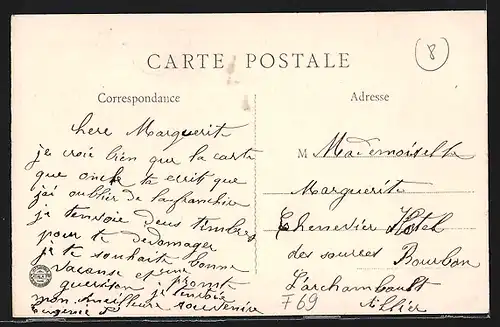 CARTE POSTALE
(8)
Correspondance
Adresse
here Marguerite
je croie bien que la carte
que oncle ta ecrit que
jai oublier de lafranchir
je tenvoie deus timbres
pour te dedomager
je te souhaite bonne
vacanse et une prompte
guerison je tenvoie
mon meilleure souvenire
Eugenie
M Mademoiselle
Marguerite
Chenevier Hotel
des sources Bourbon
L'archambault
Allier
F69